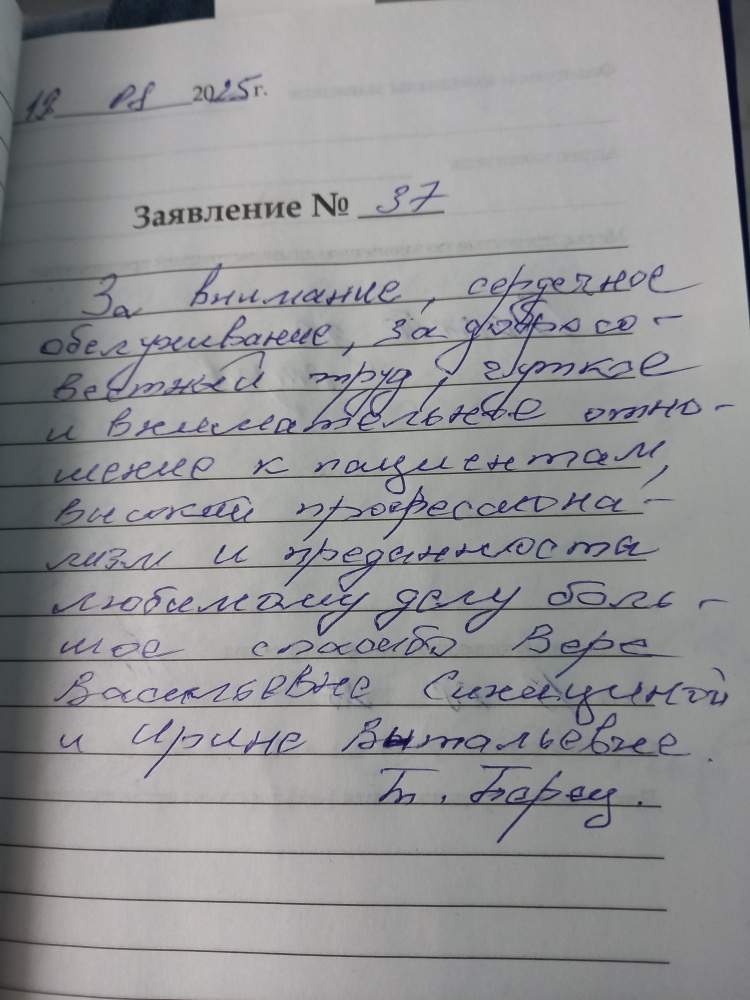 2025г.
Заявление № 37
За внимание, сердечное
обслуживание, за добросо-
вестный труд, чуткое
и внимательное отно-
шение к пациентам,
высокий профессиона-
лизм и преданность
любимому делу боль-
шое спасибо Вере
Васильевне
и Ирине Витальевне.
Т.